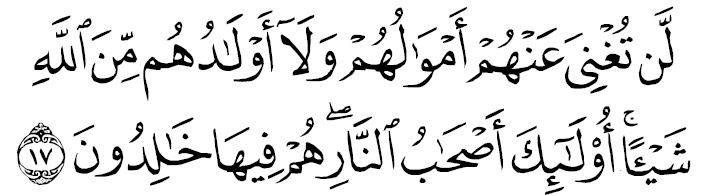 لَّن تُغْنِىَ عَنْهُمْ أَمْوَٰلُهُمْ وَلَآ أَوْلَٰدُهُم مِّنَ ٱللَّهِ
شَيْـًٔا ۚ أُو۟لَٰٓئِكَ أَصْحَٰبُ ٱلنَّارِ ۖ هُمْ فِيهَا خَٰلِدُونَ ١٧